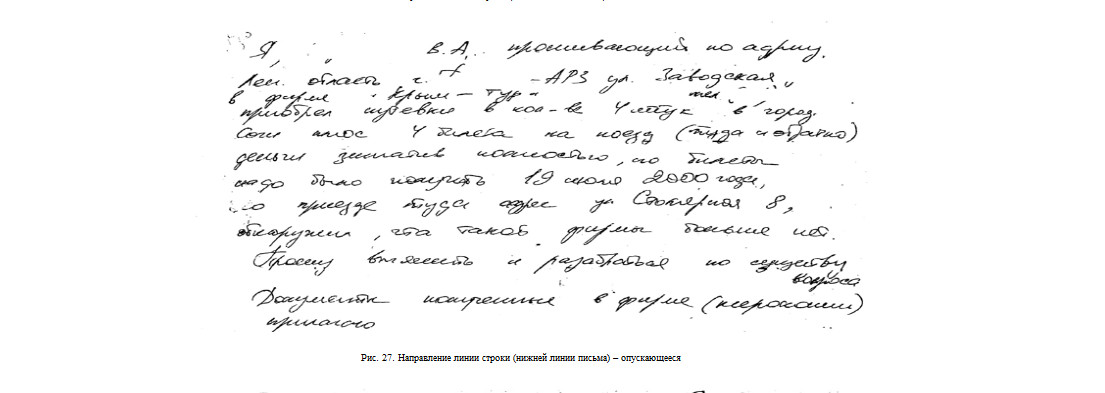 Я, в.А. проживающий по адресу.
Лен. область г. -АРЗ ул. Заводская
в фирме "Крым-Тур" тел.
приобрел путевки в кол-ве 4 штук в город.
Сочи плюс 4 билета на поезд (туда и обратно)
деньги заплатив полностью, но билеты
надо было получить 19 июля 2000 года,
по приезде туда адрес ул Столярная 8,
обнаружил, что такой фирмы больше нет.
Прошу выяснить и разобраться по существу
вопроса
Документы полученные в фирме (ксерокопии)
прилагаю
Рис. 27. Направление линии строки (нижней линии письма) – опускающееся